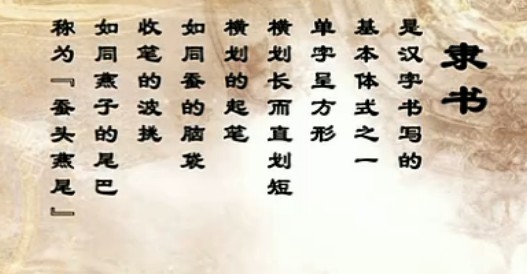 隶书
是汉字书写的
基本体式之一
单字呈方形
横划长而直划短
横划的起笔
如同蚕的脑袋
收笔的波挑
如同燕子的尾巴
称为『蚕头燕尾』